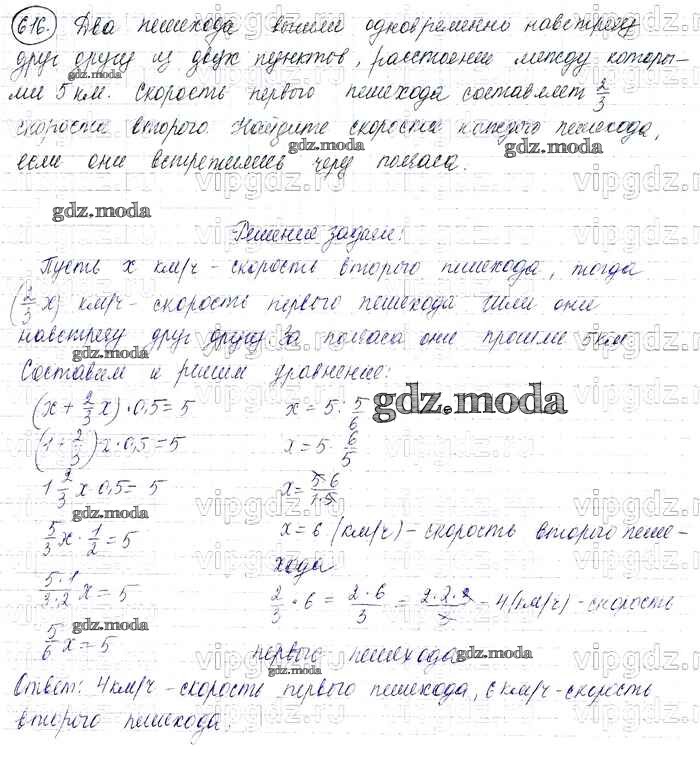 616. Два пешехода вышли одновременно навстречу
друг другу из двух пунктов, расстояние между которы-
ми 5 км. Скорость первого пешехода составляет 2/3
скорости второго. Найдите скорость каждого пешехода,
если они встретились через полчаса.
gdz.moda
Решение задачи:
Пусть x км/ч - скорость второго пешехода, тогда
(2/3 x) км/ч - скорость первого пешехода. Шли они
навстречу друг другу. За полчаса они прошли 5 км.
Составим и решим уравнение:
(x + 2/3 x) · 0,5 = 5
(1 + 2/3) x · 0,5 = 5
1 2/3 x · 0,5 = 5
5/3 x · 1/2 = 5
5·1/3·2 x = 5
5/6 x = 5
x = 5 : 5/6
x = 5 · 6/5
x = 5·6/1·5
x = 6 (км/ч) - скорость второго пеше-
хода
2/3 · 6 = 2·6/3 = 2·2·3/3 = 4 (км/ч) - скорость
первого пешехода
Ответ: 4 км/ч - скорость первого пешехода, 6 км/ч - скорость
второго пешехода.